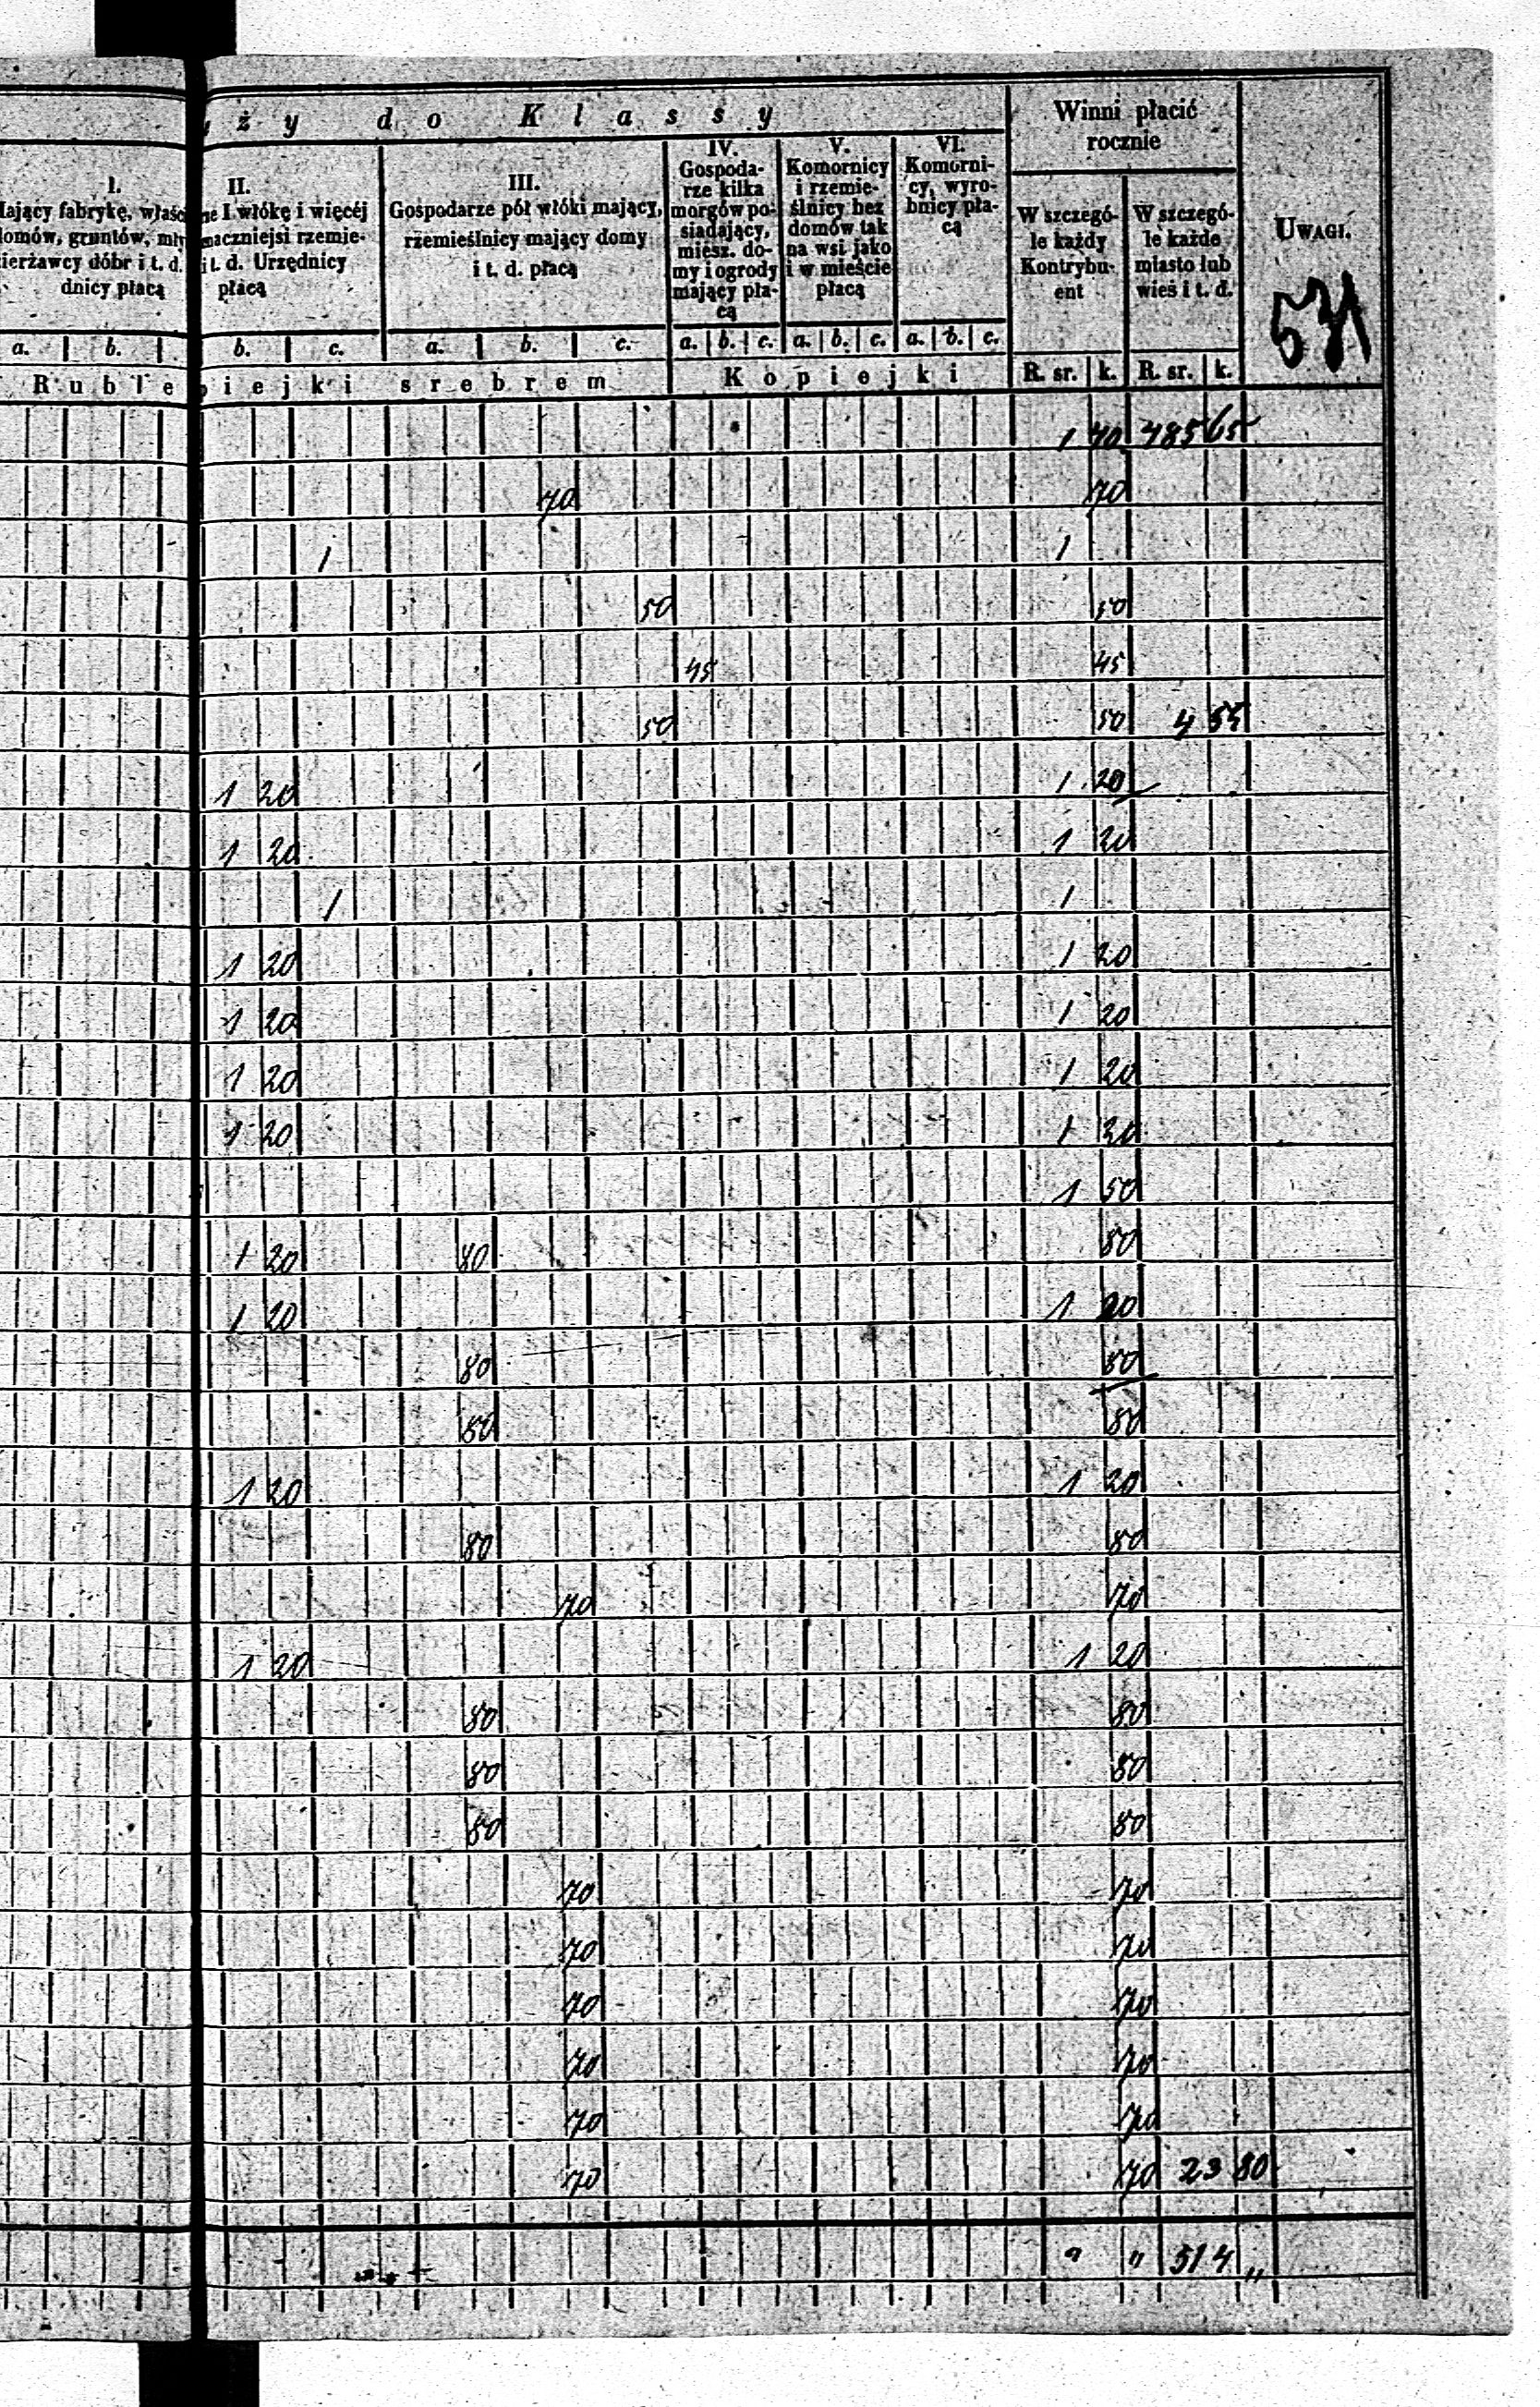 ży do Klassy
Winni płacić
rocznie
Uwagi.
531
I.
fabrykę, właśc
domów, gruntów, mły
ierżawcy dóbr i t. d.
dnicy płacą
II.
1 włókę i więcéj
naczniejsi rzemie-
i t. d. Urzędnicy
płacą
III.
Gospodarze pół włóki mający,
rzemieślnicy mający domy
i t. d. płacą
IV.
Gospoda-
rze kilka
morgów po-
siadający,
miesz. do-
my i ogrody
mający pła-
cą
V.
Komornicy
i rzemie-
ślnicy bez
domów tak
na wsi jako
i w mieście
płacą
VI.
Komorni-
cy, wyro-
bnicy pła-
cą
W szczegó-
le każdy
Kontrybu-
ent
W szczegó-
le każde
miasto lub
wieś i t. d.
a. b. b. c. a. b. c. a. b. c. a. b. c. a. b. c.
Ruble iejki srebrem Kopiejki R. sr. k. R. sr. k.
1 40 485 65
70 70
1 1
50 50
45 45
50 50 4 55
1 20 1 20
1 20 1 20
1 1
1 20 1 20
1 20 1 20
1 20 1 20
1 20 1 20
1 50
1 20 80 80
1 20 1 20
80 80
80 80
1 20 1 20
80 80
70 70
1 20 1 20
80 80
80 80
80 80
70 70
70 70
70 70
70 70
70 70
70 70 23 80
" " 514 "